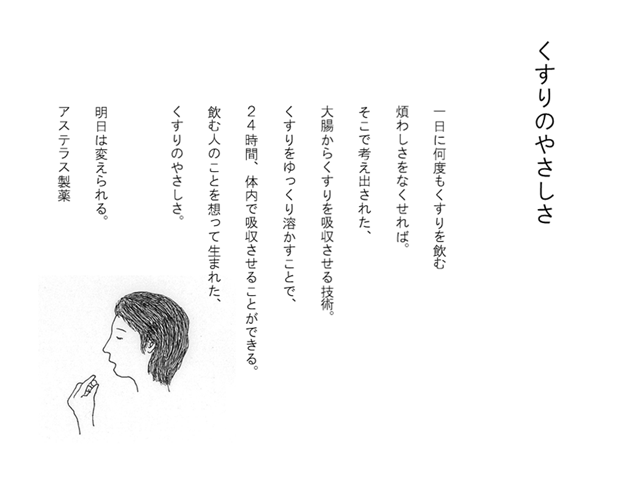 くすりのやさしさ
一日に何度もくすりを飲む
煩わしさをなくせれば。
そこで考え出された、
大腸からくすりを吸収させる技術。
くすりをゆっくり溶かすことで、
２４時間、体内で吸収させることができる。
飲む人のことを想って生まれた、
くすりのやさしさ。
明日は変えられる。
アステラス製薬